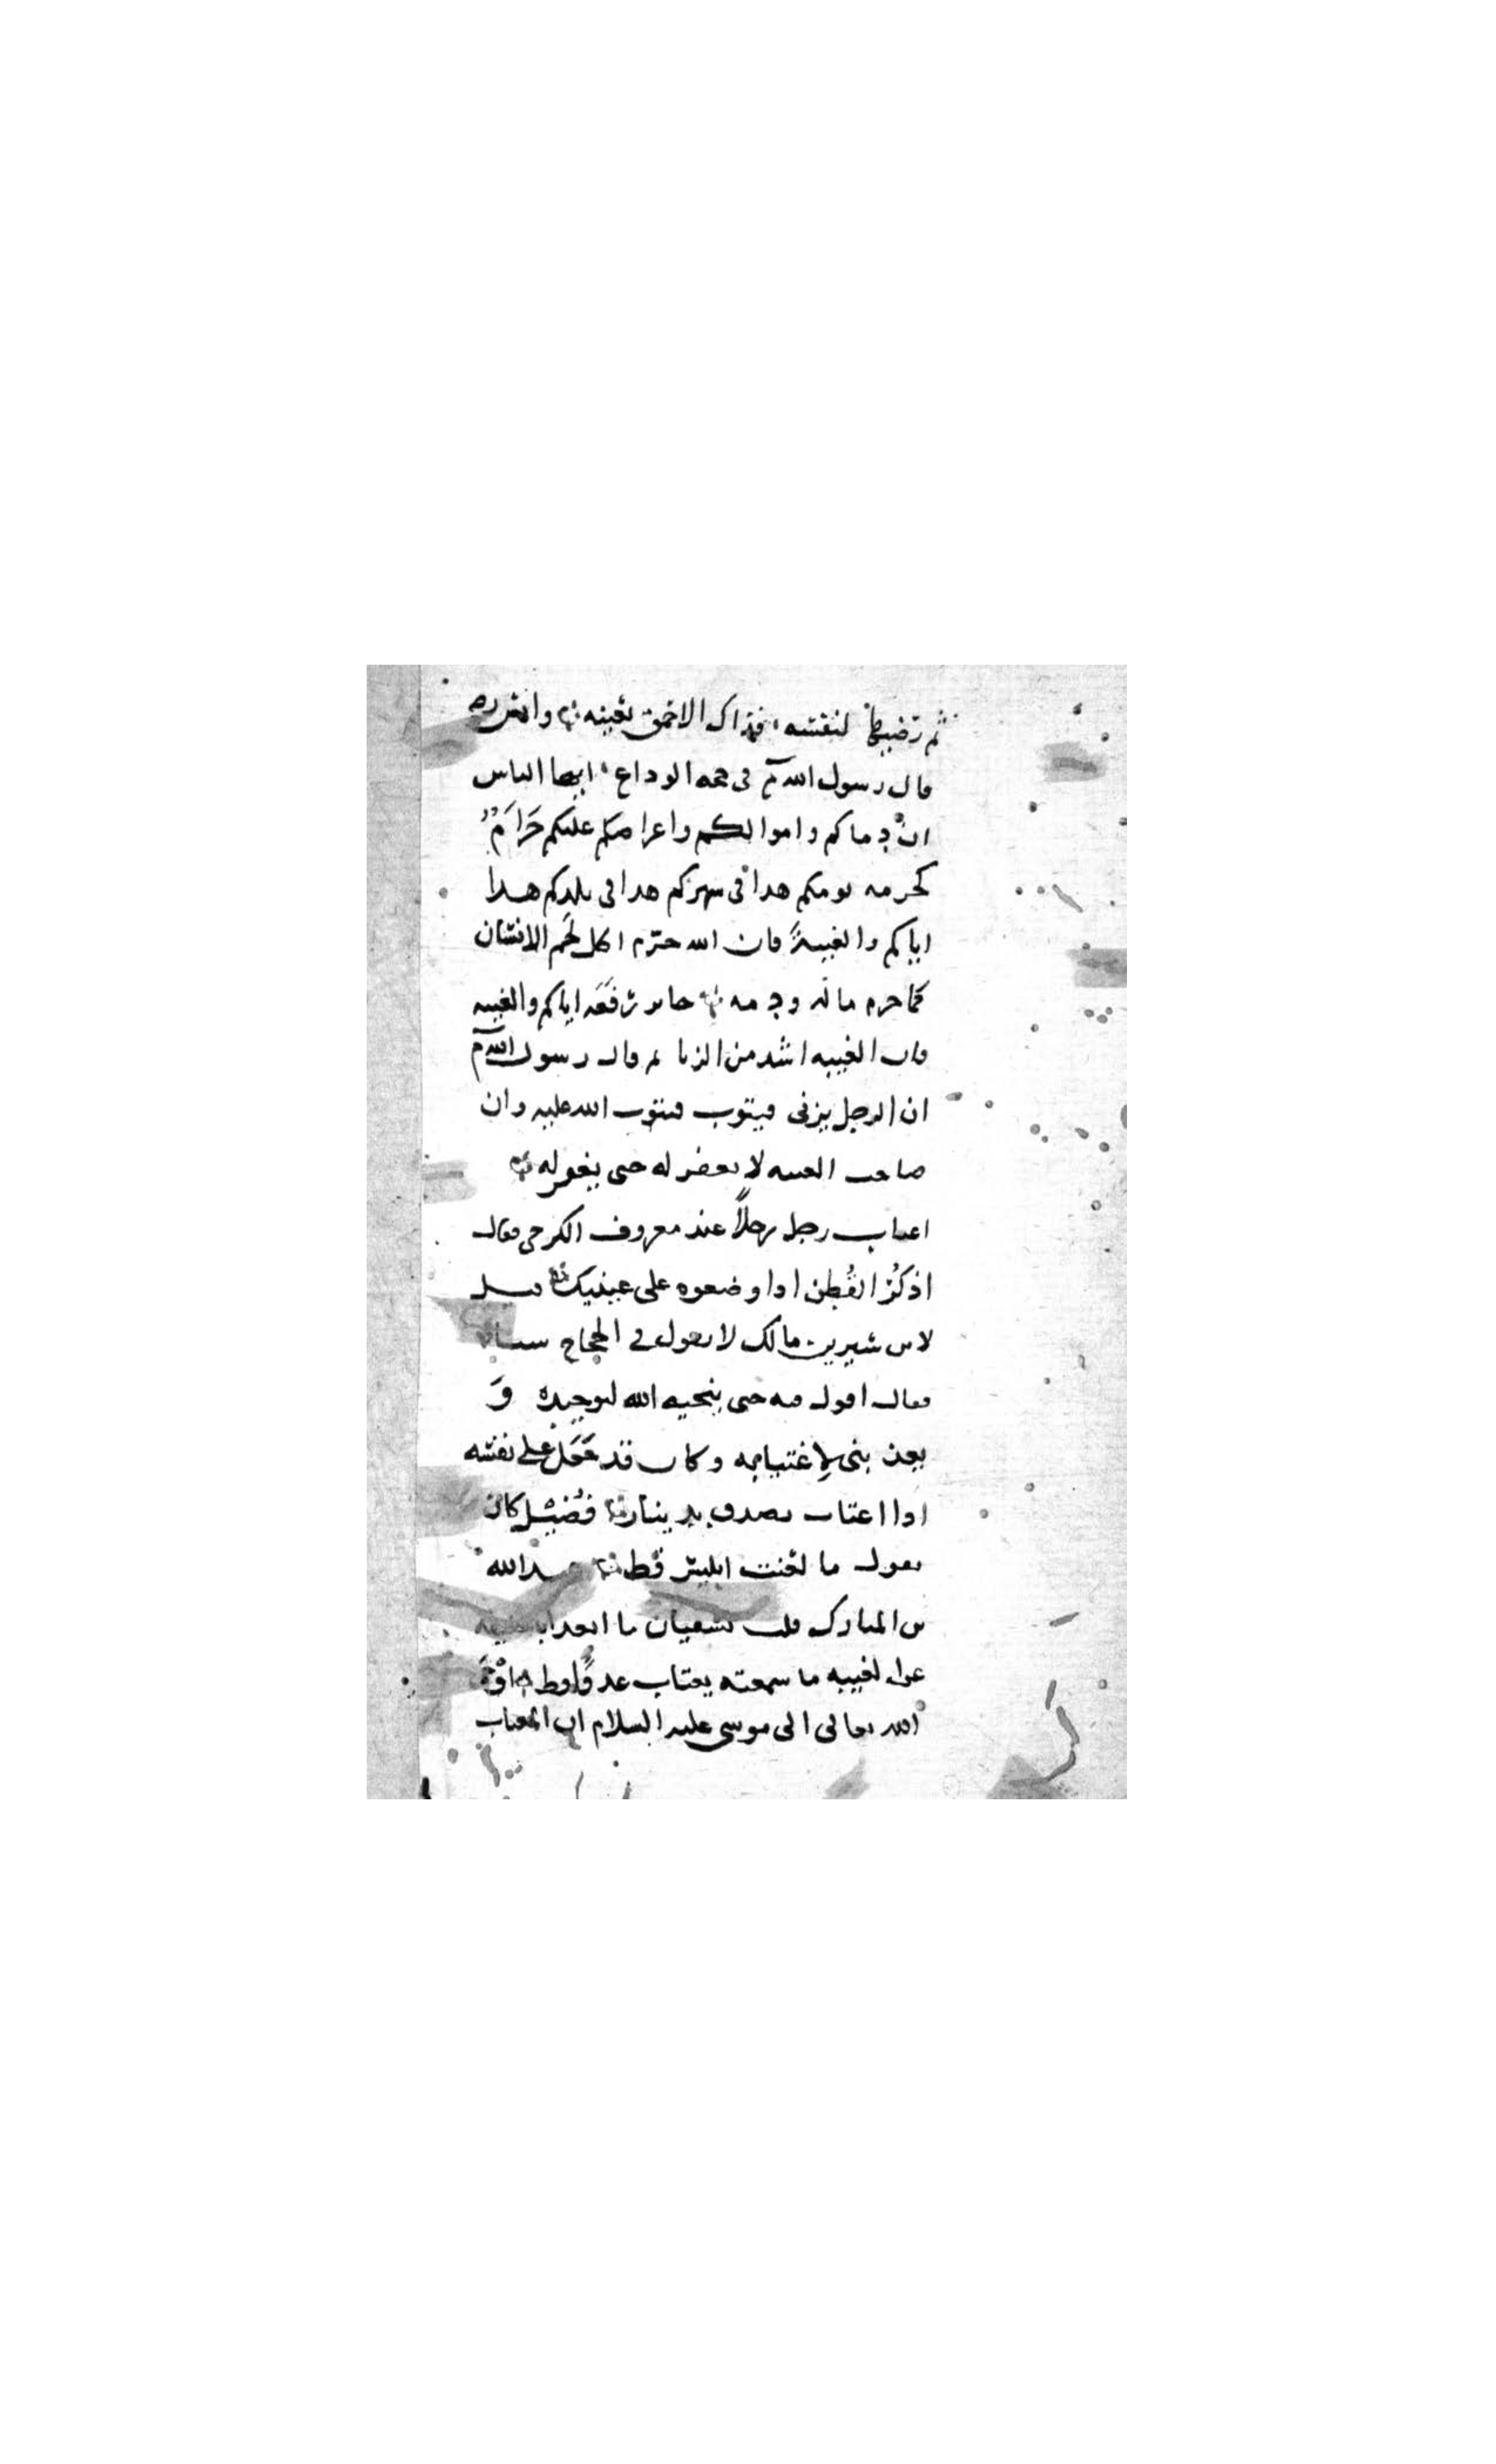 ثم ترضيها لنفسه فذاك الاحمق بعينه وانس رضه
قال رسول الله م فى حجه الوداع ايها الناس
ان دماكم واموالكم واعراضكم عليكم حرام
كحرمه يومكم هذا فى شهركم هذا فى بلدكم هذا
اياكم والغيبة فان الله حرم اكل لحم الانسان
كما حرم ماله ودمه جابر رفعه اياكم والغيبه
فان الغيبه اشد من الزنا ثم قال رسول الله م
ان الرجل يزنى فيتوب فيتوب الله عليه وان
صاحب الغيبه لا يغفر له حتى يغفر له
اغتاب رجل رجلاً عند معروف الكرخى فقال
اذكر القطن اذا وضعوه على عينيك قيل
لابن سيرين مالك لا تقول فى الحجاج شيئا
فقال اقول فيه حتى ينجيه الله لتوحيده و
يعذبنى لاغتيابه وكان قد جعل على نفسه
اذا اغتاب تصدق بدينار فضيل كان
يقول ما لعنت ابليس قط عبد الله
بن المبارك قلت لسفيان ما ابعد ابا حنيفه
عن الغيبه ما سمعته يغتاب عدوًا قط اوحى
الله تعالى الى موسى عليه السلام ان المغتاب